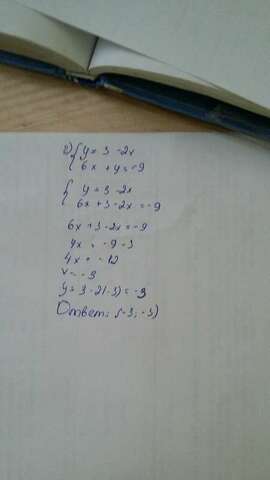 2) { y = 3 - 2x
6x + y = -9
{ y = 3 - 2x
6x + 3 - 2x = -9
6x + 3 - 2x = -9
4x = -9 - 3
4x = -12
x = -3
y = 3 - 2(-3) = -3
Ответ: (-3; -3)